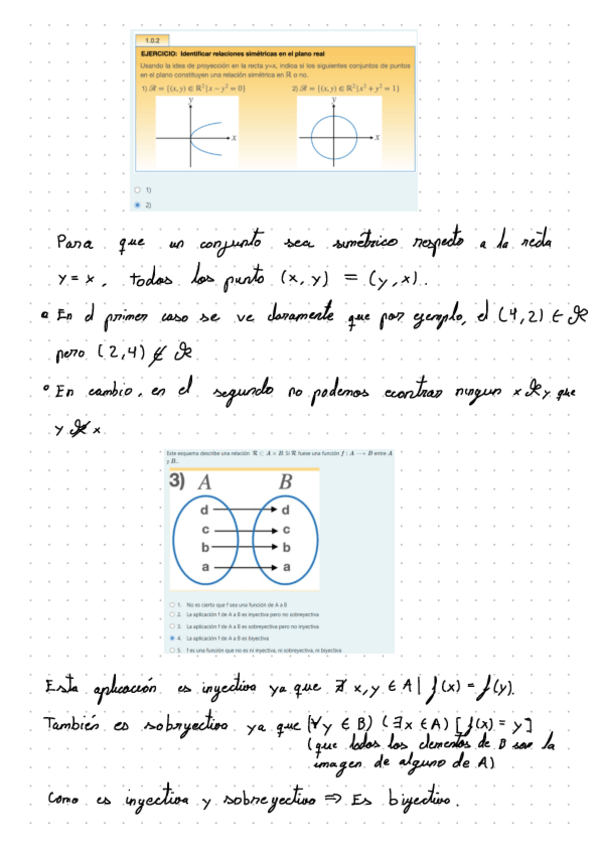 1.0.2
EJERCICIO: Identificar relaciones simétricas en el plano real
Usando la idea de proyección en la recta y=x, indica si los siguientes conjuntos de puntos
en el plano constituyen una relación simétrica en ℝ o no.
1) ℛ = {(x, y) ∈ ℝ²|x − y² = 0}
2) ℛ = {(x, y) ∈ ℝ²|x² + y² = 1}
y
x
y
x
1)
2)
Para que un conjunto sea simétrico respecto a la recta
y = x, todos los punto (x, y) = (y, x).
En el primer caso se ve claramente que por ejemplo, el (4,2) ∈ ℛ
pero (2,4) ∉ ℛ
En cambio, en el segundo no podemos econtrar ningun x ℛ y que
y ℛ̸ x
Este esquema describe una relación ℛ ⊂ A × B. Si ℛ fuese una función f : A ⟶ B entre A
y B...
3) A B
d d
c c
b b
a a
1. No es cierto que f sea una función de A a B
2. La aplicación f de A a B es inyectiva pero no sobreyectiva
3. La aplicación f de A a B es sobreyectiva pero no inyectiva
4. La aplicación f de A a B es biyectiva
5. f es una función que no es ni inyectiva, ni sobreyectiva, ni biyectiva
Esta aplicación es inyectiva ya que ∄ x, y ∈ A | f(x) = f(y).
También es sobreyectiva ya que (∀y ∈ B) (∃x ∈ A) [f(x) = y]
(que todos los elementos de B son la
imagen de alguno de A)
Como es inyectiva y sobreyectiva ⇒ Es biyectiva.